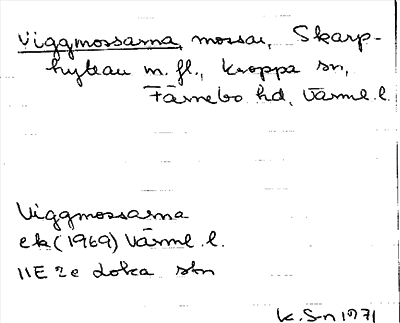 Viggmossarna, mossar, Skarp-
hyttan m. fl., Kroppa sn,
Färnebo hd, Värml. l.
Viggmossarna
ek (1969) Värml. l.
11E 2e Lokа stn
K. S-n 1971